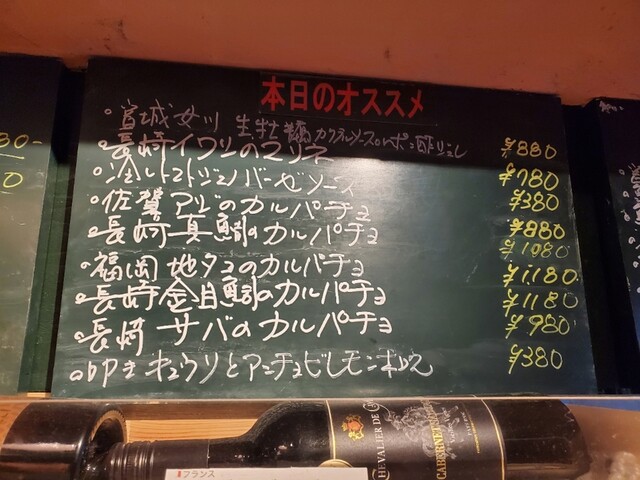 本日のオススメ
・宮城女川 生牡蠣 カクテルソースorポン酢ジュレ
・長崎イワシのマリネ ¥880
・冷製トマトジェノバーゼソース ¥780
・佐賀アジのカルパチョ ¥380
・長崎真鯛のカルパチョ ¥880
¥1080
・福岡地タコのカルパチョ ¥1,180
・長崎金目鯛のカルパチョ ¥1180
・長崎 サバのカルパチョ ¥980
・叩きキュウリとアンチョビレモン ¥380
80-
0
フランス
CHEVALIER DE
CABERNET